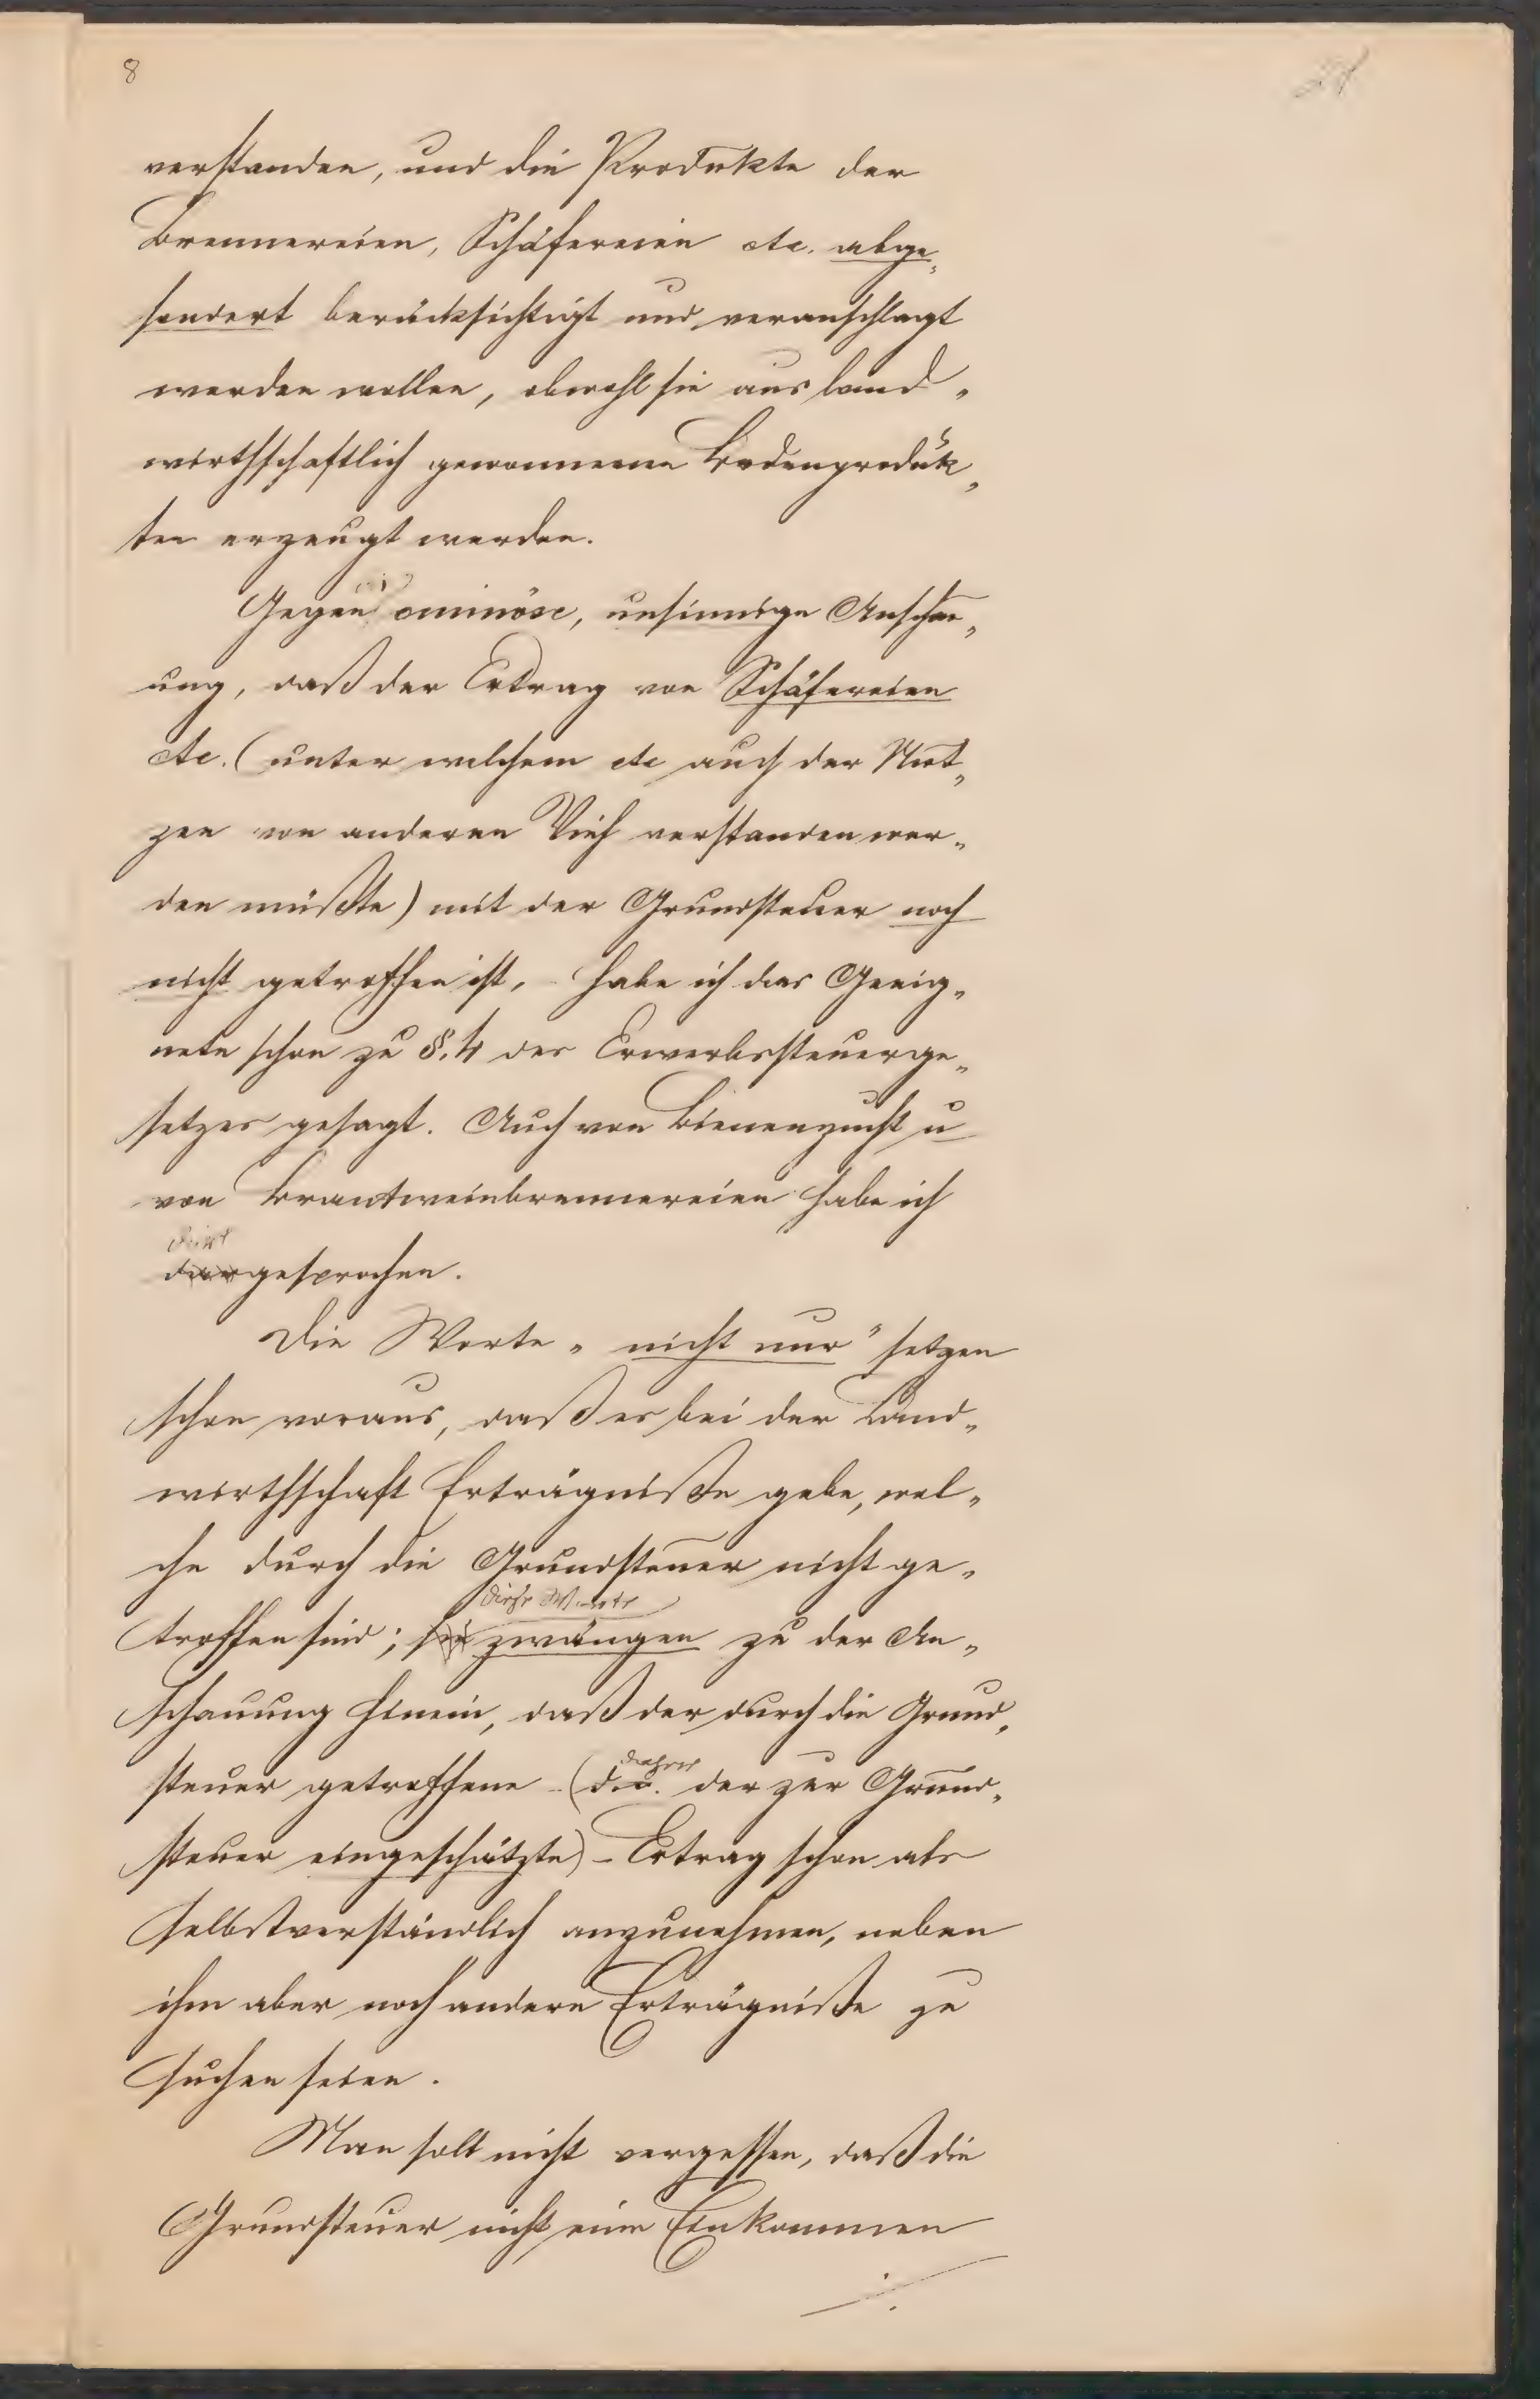 8
verstanden, und die Produkte der
Brennereien, Schäfereien etc. abge„
sondert berücksichtigt und veranschlagt
werden wollen, obwohl sie aus land„
wirthschaftlich gewonnenen Bodenproduk„
ten erzeugt werden.
Gegen ominöse, unsinnige Anschau„
ung, daß der Ertrag von Schäfereien
etc. (unter welchem etc auch der Nut„
zen von anderen Vieh verstanden wer„
den müßte) mit der Grundsteuer noch
nicht getroffen ist, - habe ich das Geeig„
nete schon zu §. 4 des Erwerbssteuerge„
setzes gesagt. Auch von Bienenzucht u
von Brantweinbrennereien habe ich
dort
gesprochen.
Die Worte „nicht nur" setzen
schon voraus, daß es bei der Land„
wirthschaft Erträgniße gebe, wel„
che durch die Grundsteuer nicht ge„
diese Worte
troffen sind; sie zwängen zu der An„
schauung hinein, daß der durch die Grund„
daher
steuer getroffene - (d. i. der zur Grund„
steuer eingeschätzte) - Ertrag schon als
selbstverständlich anzunehmen, neben
ihm aber noch andere Erträgniße zu
suchen seien.
Man soll nicht vergessen, daß die
Grundsteuer nicht eine Einkommen
./.